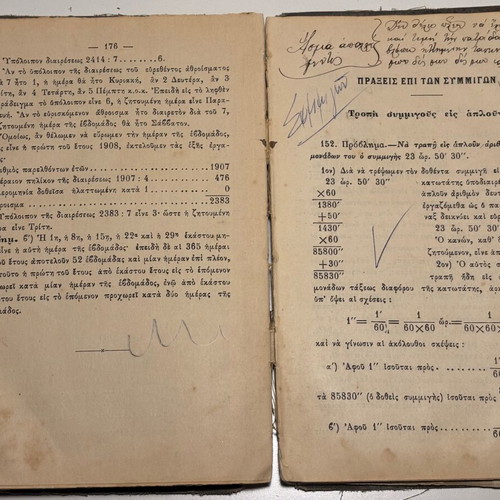 — 176 —
Ὑπόλοιπον διαιρέσεως 2414 : 7 . . . . . . . 6.
Ἂν τὸ ὑπόλοιπον τῆς διαιρέσεως τοῦ εὑρεθέντος ἀθροίσματος
7 ἦτο 1, ἡ ἡμέρα θὰ ἦτο Κυριακή, ἂν 2 Δευτέρα, ἂν 3
ἂν 4 Τετάρτη, ἂν 5 Πέμπτη κ.ο.κ. Ἐπειδὴ εἰς τὸ ληφθὲν
τὸ ὑπόλοιπον εἶνε 6, ἡ ζητουμένη ἡμέρα εἶνε
Ἂν τὸ εὑρισκόμενον ἄθροισμα ἦτο διαιρετὸν διὰ τοῦ 7,
ζητουμένη ἡμέρα τῆς ἑβδομάδος θὰ ἦτο Σάββατον.
Ὁμοίως, ἂν θέλωμεν νὰ εὕρωμεν τὴν ἡμέραν τῆς ἑβδομάδος,
εἶνε ἡ πρώτη τοῦ ἔτους 1908, ἐκτελοῦμεν τὰς ἑξῆς
παρελθόντων ἐτῶν . . . . . . . . . . . 1907
πηλίκον τῆς διαιρέσεως 1907 : 4 . . . . 476
δοθεῖσα ἠλαττωμένη κατὰ 1 . . . . 0
. . . . . . . . . . 2383
Ὑπόλοιπον τῆς διαιρέσεως 2383 : 7 εἶνε 3· ὥστε ἡ ζητουμένη
εἶνε Τρίτη.
β′) Ἡ 1η, ἡ 8η, ἡ 15η, ἡ 22α καὶ ἡ 29η ἑκάστου
εἶνε ἡ αὐτὴ ἡμέρα τῆς ἑβδομάδος· ἐπειδὴ δὲ αἱ 365 ἡμέραι
ἔτους ἀποτελοῦν 52 ἑβδομάδας καὶ μίαν ἡμέραν ἐπὶ πλέον,
ἡ πρώτη τοῦ ἔτους ἀπὸ ἑκάστου ἔτους εἰς τὸ ἑπόμενον
κατὰ μίαν ἡμέραν τῆς ἑβδομάδος, ἐνῷ ἀπὸ ἑκάστου
ἔτους εἰς τὸ ἑπόμενον προχωρεῖ κατὰ δύο ἡμέρας τῆς
ᾎσμα
ΠΡΑΞΕΙΣ ΕΠΙ ΤΩΝ ΣΥΜΜΙΓΩΝ
Τροπὴ συμμιγοῦς εἰς ἁπλοῦν
152. Πρόβλημα.—Νὰ τραπῇ εἰς ἁπλοῦν ἀριθμ.
μονάδων του ὁ συμμιγὴς 23 ὧρ. 50′ 30″.
1ον) Διὰ νὰ τρέψωμεν τὸν δοθέντα συμμιγῆ εἰς
23 ὧρ. 50′ 30″
κατωτάτης
×60
ἁπλοῦν ἀριθμὸν
1380′
ἐργαζόμεθα ὡς ὁ
+50
δεικνύει καὶ
1430′
23 ὧρ. 50′ 30″
×60
Ὁ κανών, καθ' ὃν
85800″
ζητούμενον, εἶνε
+30″
2ον) Ὁ αὐτὸς
85830″
τραπῇ ἤδη εἰς
μονάδων τάξεως διαφόρου τῆς κατωτάτης,
ὑπ' ὄψει αἱ σχέσεις :
1″ = 1/60′ = 1/60×60 ὥρ. = 1/60×60
καὶ νὰ γίνωσιν αἱ ἀκόλουθοι σκέψεις :
α′) Ἀφοῦ 1″ ἰσοῦται πρὸς . . . . . . . . 1/
τὰ 85830″ (ὁ δοθεὶς συμμιγὴς) ἰσοῦται πρὸς
β′) Ἀφοῦ 1″ ἰσοῦται πρὸς . . . . .